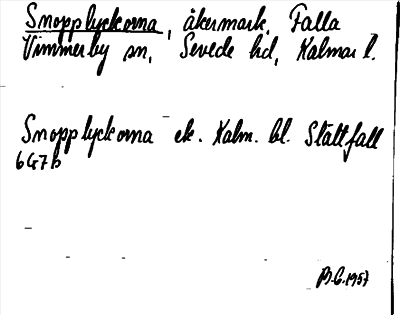 Snopplyckorna, åkermark, Falla
Vimmerby sn, Sevede hd, Kalmar l.
Snopplyckorna ek. Kalm. bl. Slättfall
6G7b
B.G. 1957